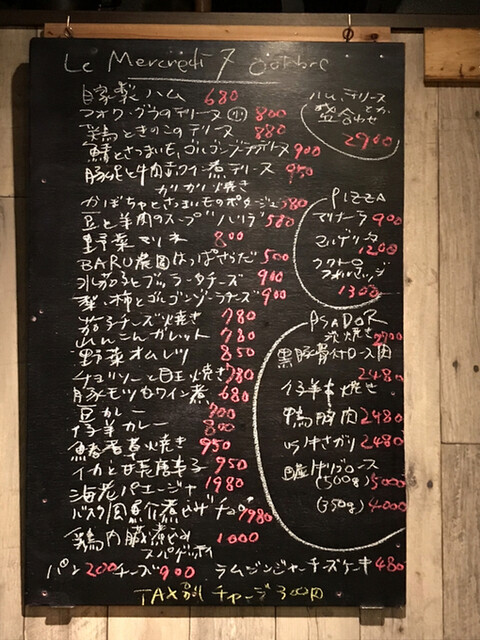 Le Mercredi 7 octobre
自家製ハム 680
フォワ・グラのテリーヌ (小) 800
鶏ときのこのテリーヌ 880
鯖とさつまいも、ゴルゴンゾーラテリーヌ 900
豚足と牛肉赤ワイン煮テリーヌ 950
カリカリ焼き
かぼちゃとさつまいものポタージュ 580
豆と羊肉のスープ ハリラ 580
野菜マリネ 800
BARU農園はっぱさらだ 500
水茄子とブッラータチーズ 900
梨、柿とゴルゴンゾーラチーズ 900
茄子チーズ焼き 780
れんこんガレット 780
野菜オムレツ 850
チョリソーと目玉焼き 780
豚モツ白ワイン煮 680
豆カレー 700
仔羊カレー 800
鯖香草焼き 950
イカと甘長唐辛子 950
海老パエージャ 1980
バスク風魚介煮込み 1980
鶏内臓煮込み 1000
スパゲッティ
パン 200 チーズ 900 ラムジンジャーチーズケーキ 480
TAX別 チャージ 300円
ハム、テリーヌ
とか
盛合わせ
2900
PIZZA
マリナーラ 900
マルゲリータ 1200
クワトロ
フォルマッジ
1300
ASADOR
炭焼き 2700
黒豚骨付ロース肉
2480
仔羊串焼き
鴨胸肉 2480
牛サガリ 2480
国産牛リブロース
(500g) 5000
(350g) 4000